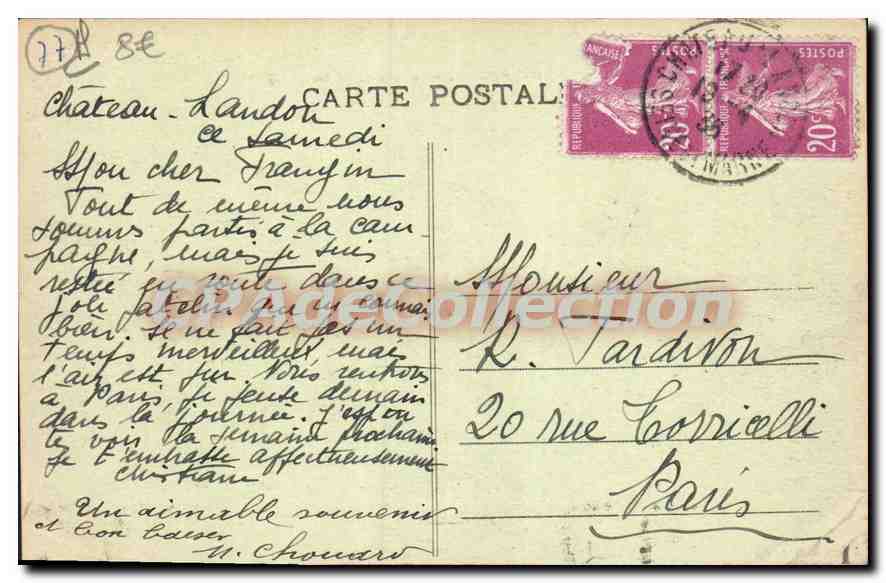 77 8€
CARTE POSTALE
Château-Landon
ce Samedi
Mon cher Frangin
Tout de même nous
sommes partis à la cam-
pagne, mais je suis
restée en route dans ce
joli patelin que tu connais
bien. Il ne fait pas un
temps merveilleux, mais
l'air est pur. Nous rentrons
à Paris, je pense demain
dans la journée. J'espère
te voir la semaine prochaine
Je t'embrasse affectueusement
Christiane
Un aimable souvenir
et bon baiser
Monsieur
R. Tardivon
20 rue Torricelli
Paris
FRANÇAISE
POSTES
REPUBLIQUE
20c
POSTES
20c
CHATEAU-L
MARNE
CPAdeCollection